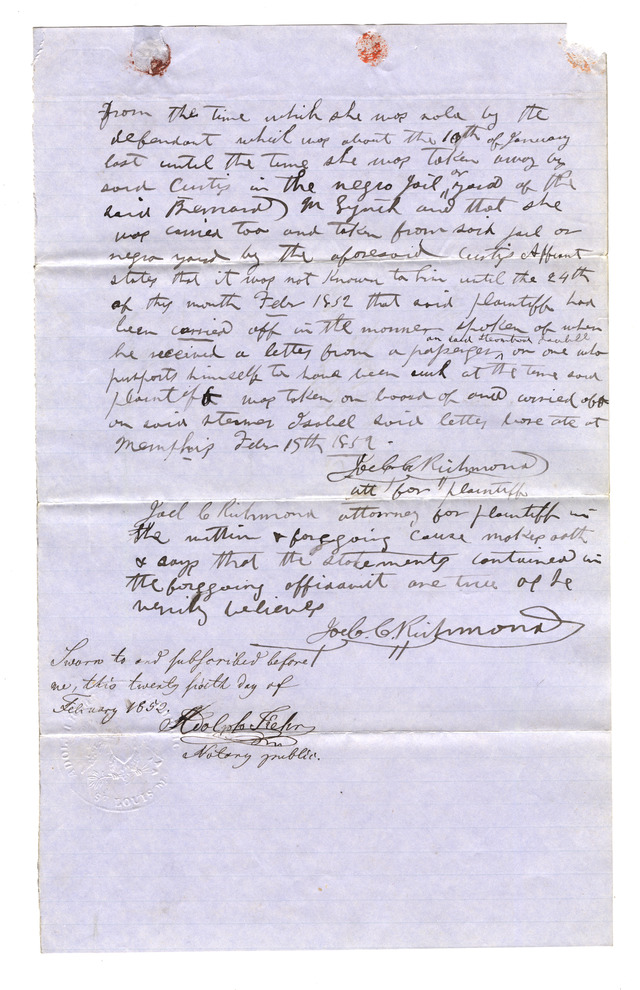 from the time which she was sold by the
defendant which was about the 10th of January
last until the time she was taken away by
said Curtis in the negro Jail or yard of the
said Bernard M Lynch and that she
was carried too and taken from said jail or
negro yard by the aforesaid Curtis Affiant
states that it was not known to him until the 24th
of this month Febr 1852 that said plaintiff had
been carried off in the manner spoken of when
he received a letter from a passenger on said steamboat Isabell or one who
purports himself to have been such at the time said
plaintiff was taken on board of and carried off
on said steamer Isabel said letter bore date at
Memphis Febr 15th 1852.
Joel C Richmond
att for plaintiff
Joel C Richmond attorney for plaintiff in
the within & forggoing cause makes oath
& says that the statements contained in
the forggoing affidavit are true as he
verily believes
Joel C Richmond
Sworn to and subscribed before
me, this twenty sixth day of
February 1852.
Adolph Fehr
Notary public.
ST LOUIS